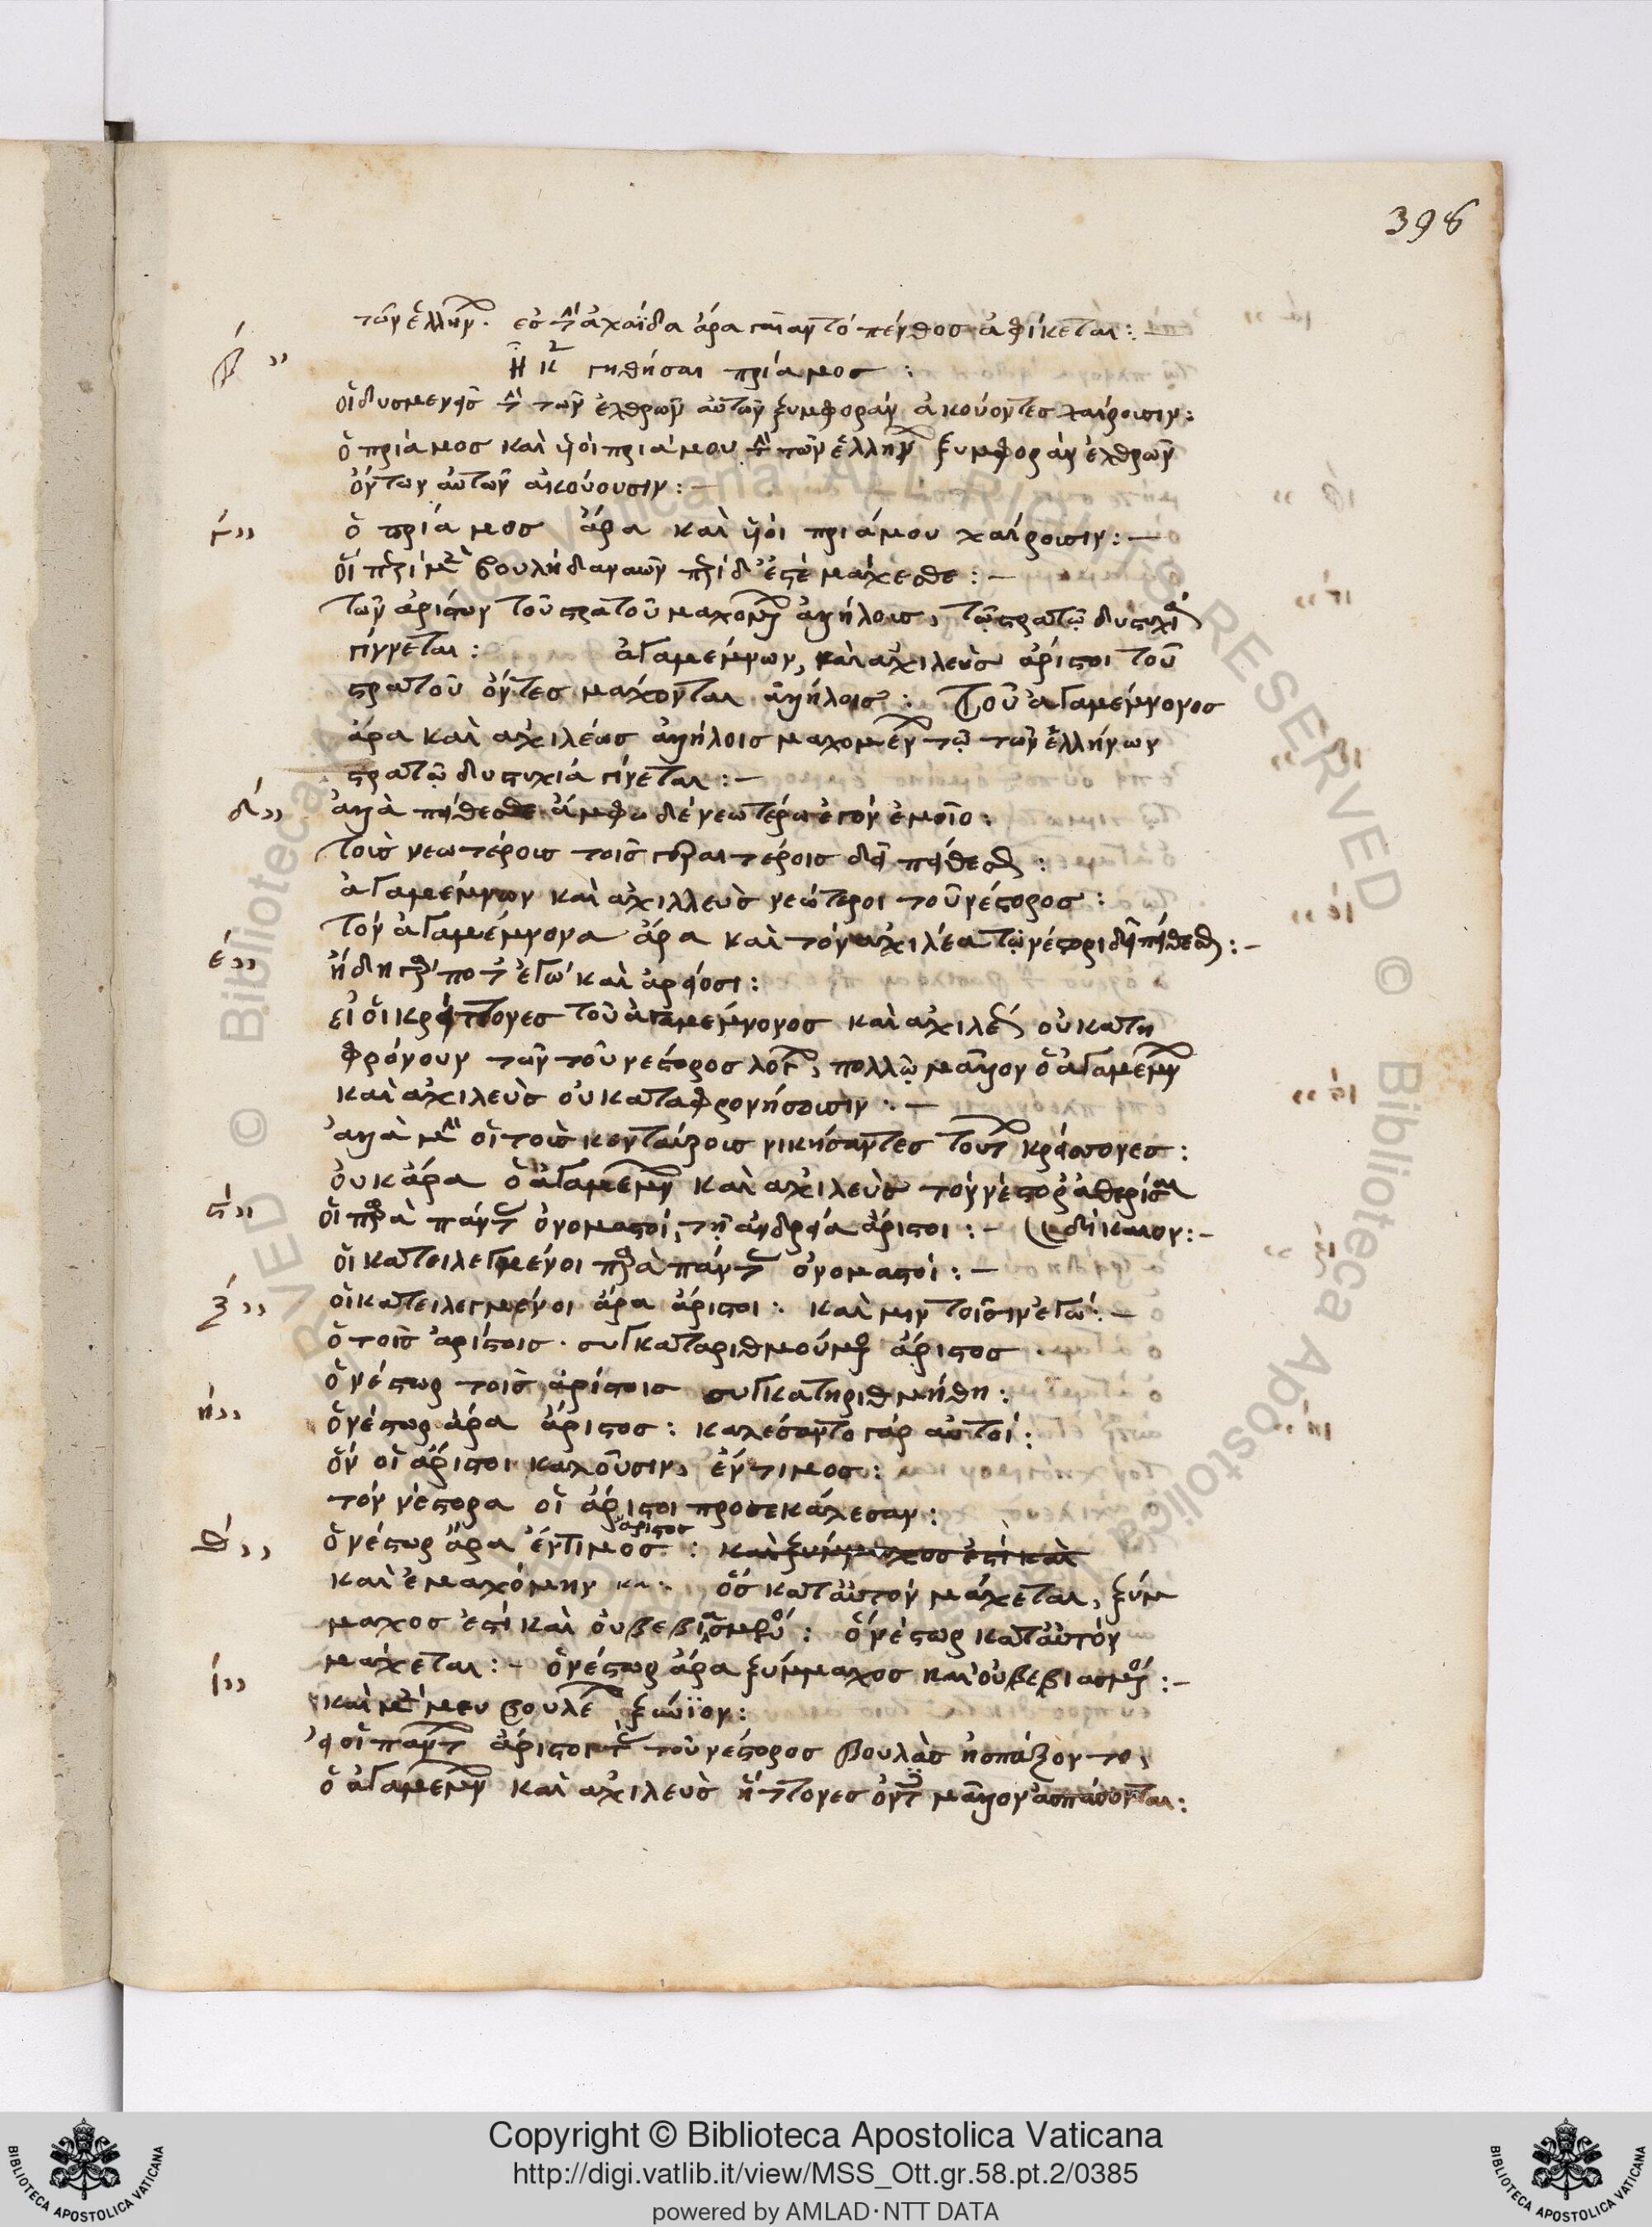 398
τῶν ἑλλήνων. ἐς τὴν ἀχαΐδα ἄρα γαῖαν τὸ πένθος ἀφίκεται:
β´ ἦ κεν γηθήσαι πρίαμος:
οἱ δυσμενεῖς τὴν τῶν ἐχθρῶν αὐτῶν ξυμφορὰν ἀκούοντες χαίρουσιν:
ὁ πρίαμος καὶ υἱοὶ πριάμου τὴν τῶν ἑλλήνων ξυμφορὰν ἐχθρῶν
ὄντων αὐτῶν ἀκούουσιν:—
γ´ ὁ πρίαμος ἄρα καὶ υἱοὶ πριάμου χαίρουσιν:—
οἳ περὶ μὲν βουλὴ δαναῶν περὶ δ' ἐστὲ μάχεσθε:—
τῶν ἀρίστων τοῦ στρατοῦ μαχομένων ἀλλήλοις, τῷ στρατῷ δυστυχία
γίγνεται: ἀγαμέμνων, καὶ ἀχιλεὺς ἄριστοι τοῦ
στρατοῦ ὄντες μάχονται ἀλλήλοις: τοῦ ἀγαμέμνονος
ἄρα καὶ ἀχιλέως ἀλλήλοις μαχομένων τῷ τῶν ἑλλήνων
στρατῷ δυστυχία γίνεται:—
δ´ ἀλλὰ πείθεσθε ἄμφω δὲ νεωτέρω ἐστὸν ἐμοῖο:
τοῖς νεωτέροις τοῖς γεραιτέροις δεῖ πείθεσθαι:
ἀγαμέμνων καὶ ἀχιλλεὺς νεώτεροι τοῦ νέστορος:
τὸν ἀγαμέμνονα ἄρα καὶ τὸν ἀχιλέα τῷ νέστορι δεῖ πείθεσθαι:—
ε´ ἤδη γάρ ποτ' ἐγὼ καὶ ἀρείοσι:
εἰ οἱ κρείττονες τοῦ ἀγαμέμνονος καὶ ἀχιλέως οὐ κατη
φρόνουν τῶν τοῦ νέστορος λόγων, πολλῷ μᾶλλον ὁ ἀγαμέμνων
καὶ ἀχιλεὺς οὐ καταφρονήσουσιν:—
ἀλλὰ μὴν οἱ τοὺς κενταύρους νικήσαντες τούτων κρείσσονες:
οὐκ ἄρα ὁ ἀγαμέμνων καὶ ἀχιλεὺς τὸν νέστορα ἀθερίσαι
ς´ οἱ παρὰ πάντων ὀνομαστοί, τῇ ἀνδρείᾳ ἄριστοι:— δίκαιον:—
οἱ κατειλεγμένοι παρὰ πάντων ὀνομαστοί:—
ζ´ οἱ κατειλεγμένοι ἄρα ἄριστοι: καὶ μὴν τοῖσιν ἐγώ:—
ὁ τοῖς ἀρίστοις συγκαταριθμούμενος ἄριστος.
ὁ νέστωρ τοῖς ἀρίστοις συγκατηριθμήθη:
η´ ὁ νέστωρ ἄρα ἄριστος: καλέσαντο γὰρ αὐτοί:
ὃν οἱ ἄριστοι καλοῦσιν, ἔντιμος:
τὸν νέστορα οἱ ἄριστοι προσεκάλεσαν:
θ´ ὁ νέστωρ ἄρα ἔντιμος ἄριστος: καὶ ξύμμαχος ἐστὶ καὶ
καὶ ἐμαχόμην κα: ὃς κατ' αὐτὸν μάχεται, ξύμ
μαχος ἐστὶ καὶ οὐ βεβιασμένος: ὁ νέστωρ κατ' αὐτὸν
μάχεται:— ὁ νέστωρ ἄρα ξύμμαχος καὶ οὐ βεβιασμένος:—
ι´ καὶ μέν μευ βουλέων ξύνιον:
εἰ οἱ πάντων ἄριστοι τὰς τοῦ νέστορος βουλὰς ἠσπάζοντο,
ὁ ἀγαμέμνων καὶ ἀχιλεὺς ἥττονες ὄντες μᾶλλον ἀσπάσονται:
Copyright © Biblioteca Apostolica Vaticana
http://digi.vatlib.it/view/MSS_Ott.gr.58.pt.2/0385
powered by AMLAD·NTT DATA
BIBLIOTECA APOSTOLICA VATICANA
BIBLIOTECA APOSTOLICA VATICANA